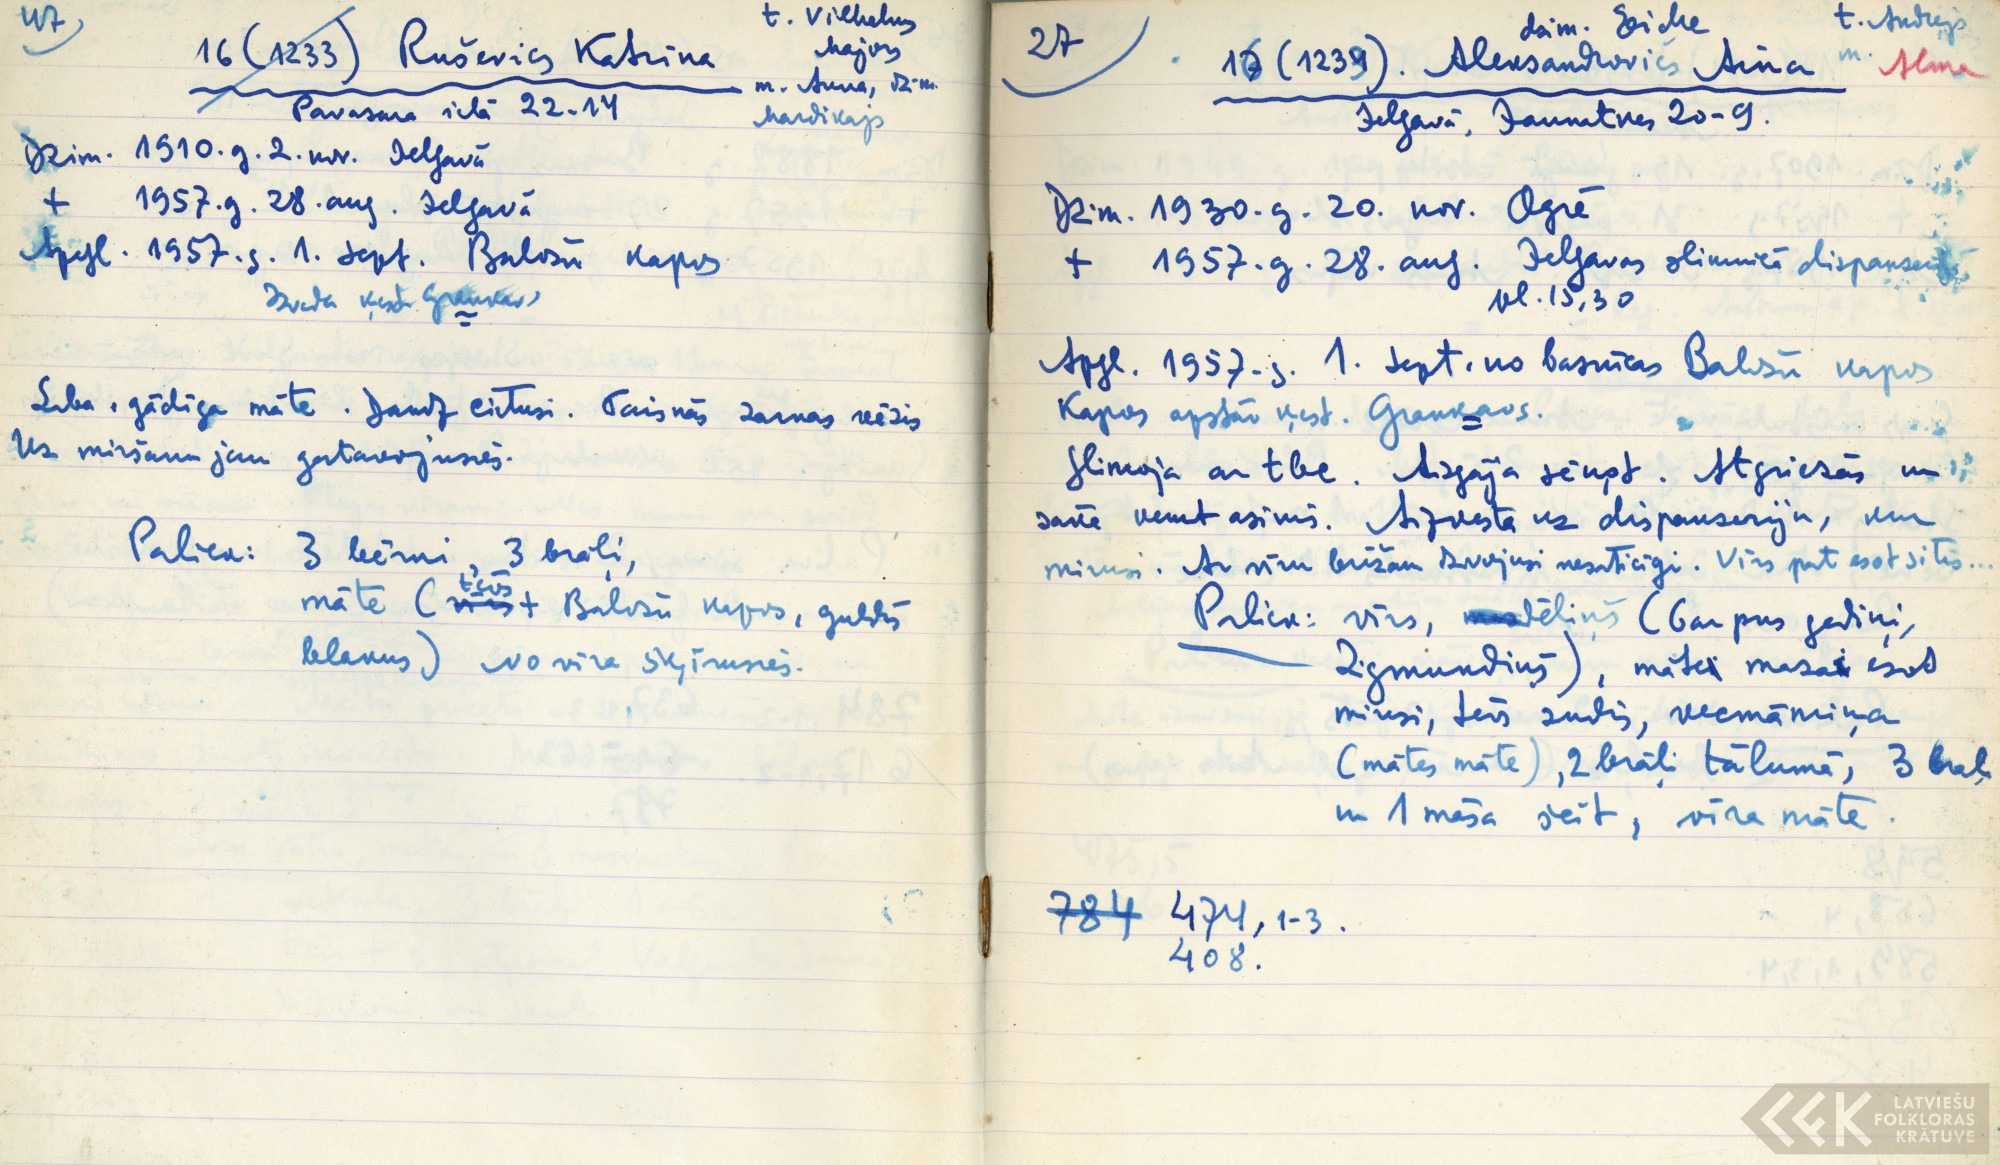 47
t. Vilhelms
Majors
m. Anna, dzim.
Mardikajs
16 (1233) Ruševics Katrina
Pavasara ielā 22-14
Dzim. 1910. g. 2. nov. Jelgavā
+ 1957. g. 28. aug. Jelgavā
Apgl. 1957. g. 1. sept. Baložu kapos
Ķest. Graukavs
Laba, gādīga māte. Daudz cietusi. Taisnās zarnas vēzis
Uz miršanu jau gatavojusies.
Paliek: 3 bērni, 3 brāļi,
māte (tēvs + Baložu kapos, guldīs
blakus) No vīra šķīrusies.
27
dzim. Spicke
t. Andrejs
m. Alma
16 (1239). Aleksandrovičs Aina
Jelgavā, Jaunatnes 20-9.
Dzim. 1930. g. 20. nov. Ogrē
+ 1957. g. 28. aug. Jelgavas slimnīcā dispanserī,
pl. 15,30
Apgl. 1957. g. 1. sept. no baznīcas Baložu kapos
Kapos apstāv ķest. Graukavs.
Slimoja ar tbc. Aizgāja sēņot. Atgriezās un
sākā vemt asinis. Aizvesta uz dispanseriju, kur
mirusi. Ar vīru brīžam dzīvojusi nesaticīgi. Vīrs pat esot sitis...
Paliek: vīrs, dēliņš (6 ar pus gadiņi,
Zigmundiņš), mātei mazai esot
mirusi, tēvs zudis, vecmāmiņa
(mātes māte), 2 brāļi tālumā, 3 brāļi
un 1 māsa šeit, vīra māte.
784 474, 1-3.
408.
LATVIEŠU
FOLKLORAS
KRĀTUVE